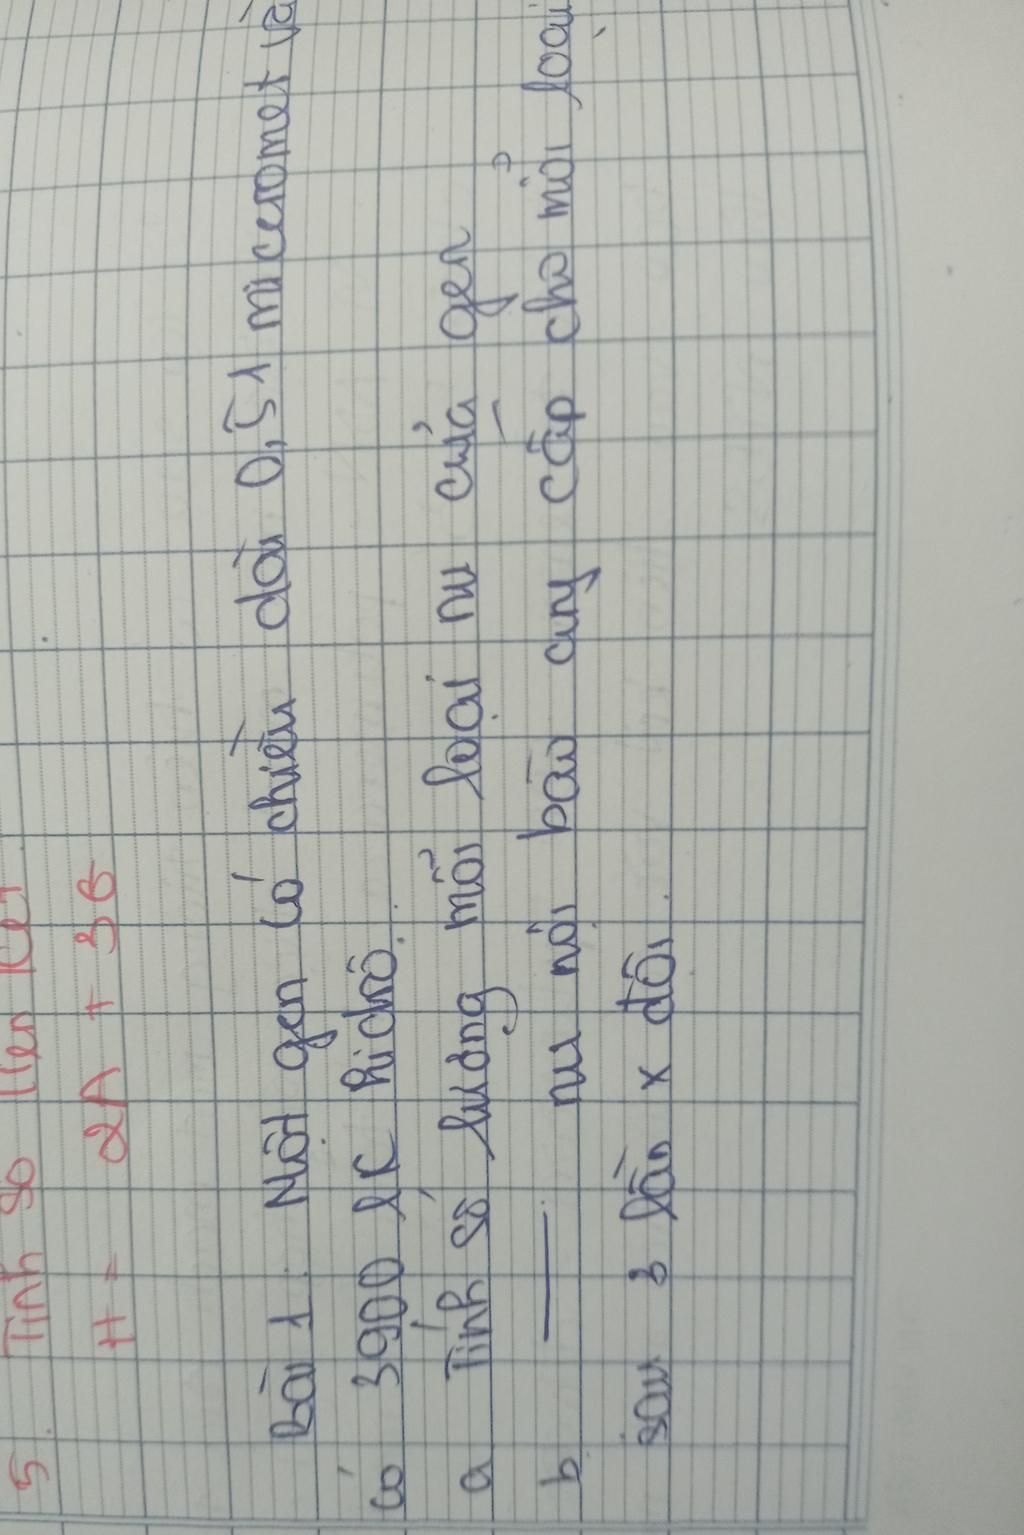 5. Tính số liên kết
H = 2A + 3G
Bài 1. Một gen có chiều dài 0,51 micromet và
có 3900 lk hiđrô.
a Tính số lượng mỗi loại nu của gen
b —— nu nôi bào cung cấp cho mỗi loại
sau 3 lần x đôi.